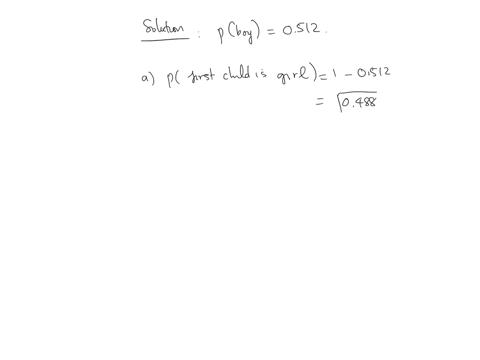 Solution : p(boy) = 0.512.
a) p( first child is girl) = 1 - 0.512
= 0.488